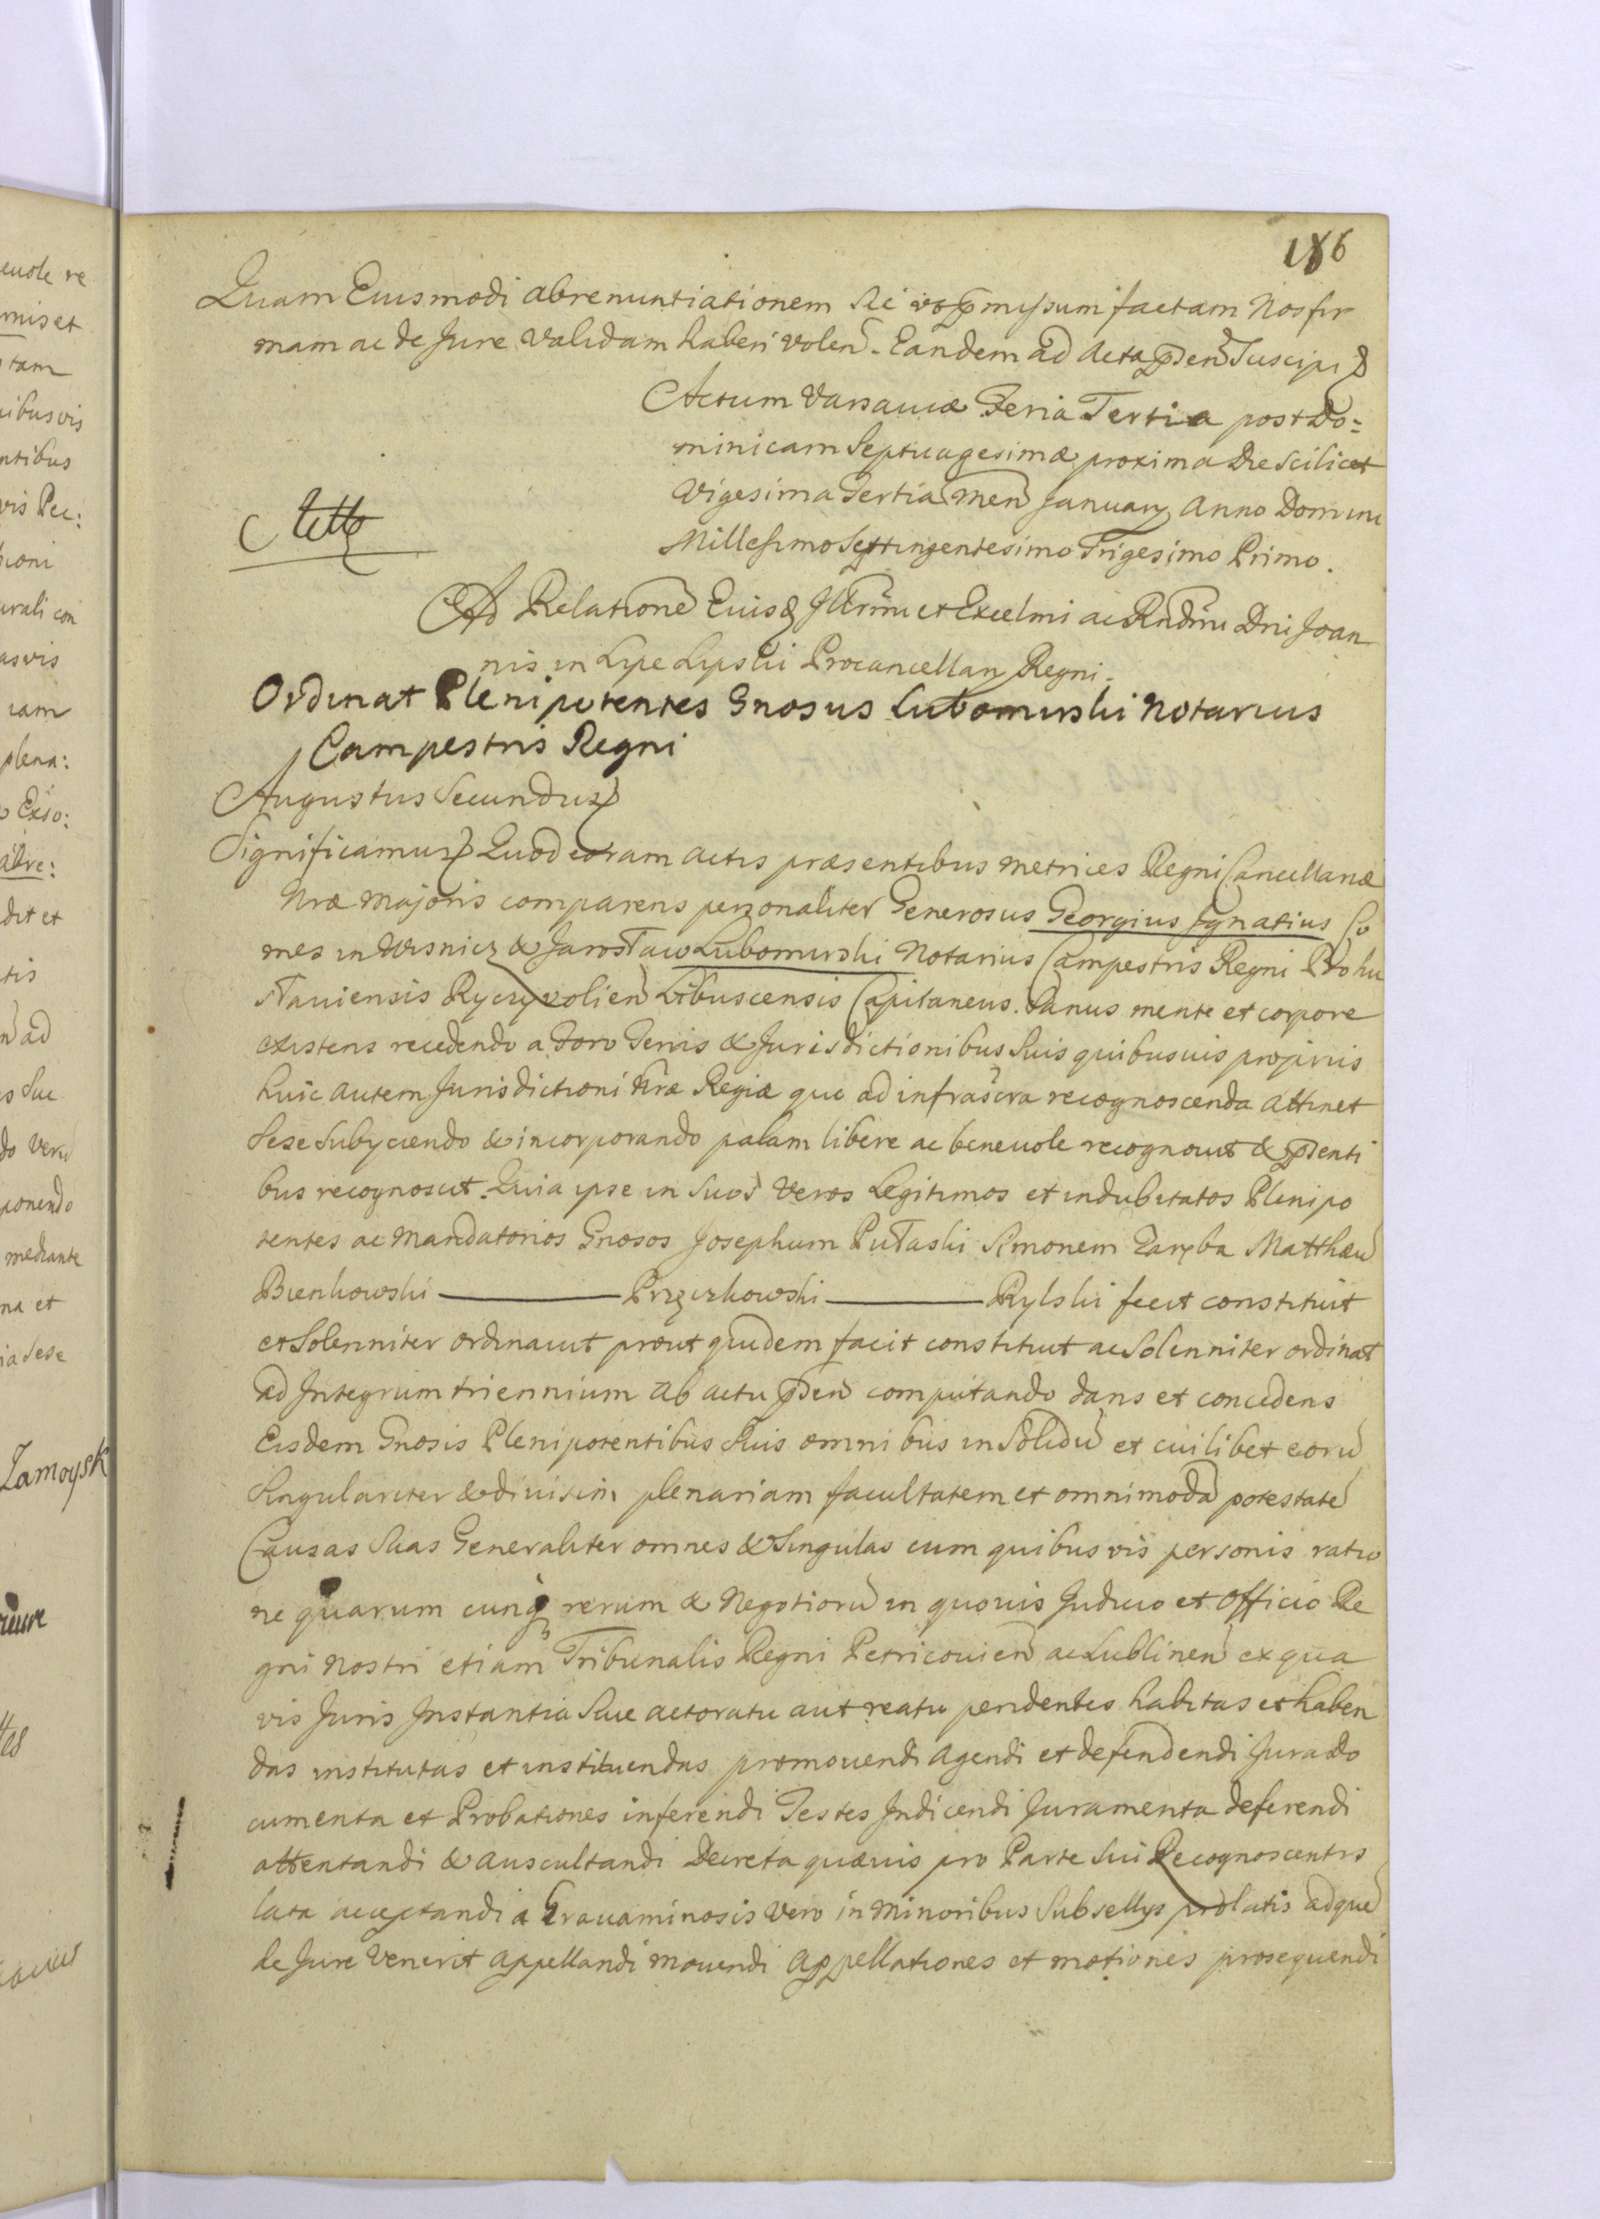 186
Quam Eiusmodi abrenuntiationem sic facta̅m Nos fir
mam ac de Jure Validam haberi volen. Eandem ad Acta p̅sen Suscipi
Actum Varsaviæ Feria Tertia post Do=
minicam Septuagesimæ proxima Die Scilicet
Vigesima Tertia Men January Anno Domini
Millesimo Septingentesimo Trigesimo Primo.
Ad Relatione Eiusd Illrmi et Excelmi ac Rndmi Dni Joan
nis in Lipe Lipski Procancellary Regni.
Ordinat Plenipotentes Gnosus Lubomirski Notarius
Campestris Regni
Augustus Secundus
Significamus Quod coram actis præsentibus metrices Regni Cancellariæ
Nræ Majoris comparens personaliter Generosus Georgius Ignatius Co
mes in Wisnicz & Jarosław Lubomirski Notarius Campestris Regni Bohu
slaviensis Ryczyvolien Libuscensis Capitaneus. Sanus mente et corpore
existens recedendo a Foro Terris & Jurisdictionibus Suis quibusuis propriis
huic autem Jurisdictioni Nræ Regiæ quo ad infrascra recognoscenda attinet
Sese Subyciendo & incorporando palam libere ac beneuole recognouit & p̅senti
bus recognoscit. Quia ipse in Suos Veros Legitimos et indubitatos Plenipo
tentes ac Mandatorios Gnosos Josephum Pułaski Simonem Zaręba Matthæu
Bienkowski ——— Przęczkowski ——— Rylski fecit constituit
et Solenniter ordinauit prout quidem facit constituit ac Solenniter ordinat
ad Integrum triennium ab actu p̅sen computando dans et concedens
Eisdem Gnosis Plenipotentibus Suis omnibus in Solidu et cuilibet eoru
Singulariter & diuisim plenariam facultatem et omnimoda potestate
Causas Suas Generaliter omnes & Singulas cum quibus vis personis ratio
ne quarum cunq rerum & Negotioru in quouis Judicio et Officio Re
gni Nostri etiam Tribunalis Regni Petricouien ac Lublinen ex qua
vis Juris Instantia Siue actoratu aut reatu pendentes habitas et haben
das institutas et instituendas promouendi agendi et defendendi Jura do
cumenta et Probationes inferendi Testes Indicendi Juramenta deferendi
attentandi & auscultandi Decreta quæuis pro Parte Sui Recognoscentis
lata acceptandi a Grauaminosis Vero in Minoribus Subsellys prolatis adque
de Jure Venerit appellandi mouendi appellationes et motiones prosequendi